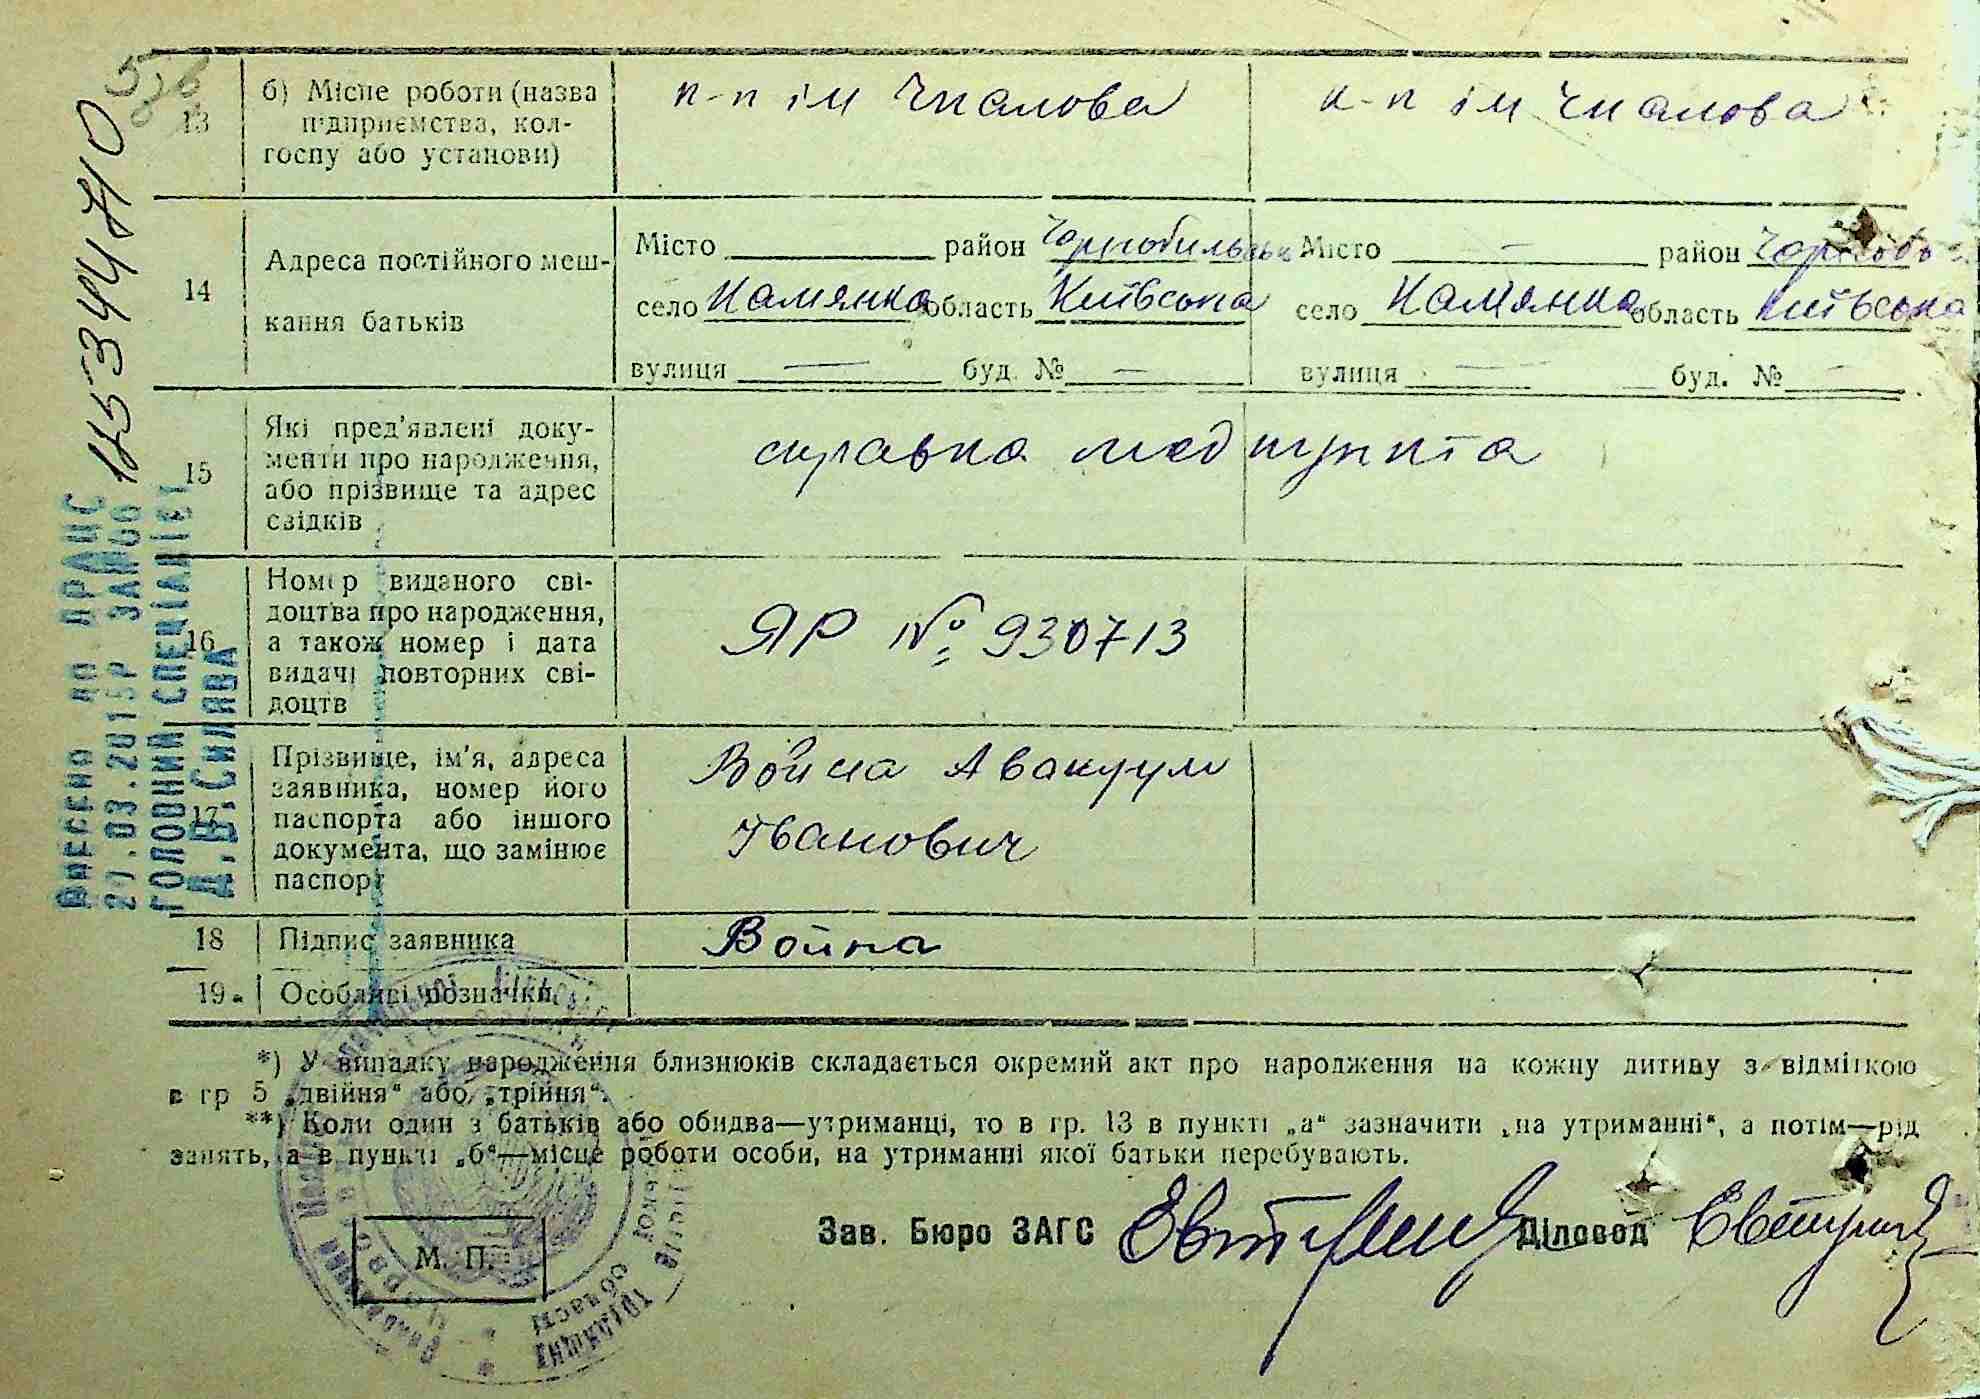 115344710
13
б) Місце роботи (назва
підприємства, кол-
госпу або установи)
к-п ім Чкалова
к-п ім Чкалова
14
Адреса постійного меш-
кання батьків
Місто район Чорнобильськ
село Камянка область Київська
вулиця — буд. № —
Місто — район
село Камянка область Київська
вулиця — буд. № —
15
Які пред'явлені доку-
менти про народження,
або прізвище та адрес
свідків
справка медпункта
16
Номер виданого сві-
доцтва про народження,
а також номер і дата
видачі повторних сві-
доцтв
ЯР № 930713
17
Прізвище, ім'я, адреса
заявника, номер його
паспорта або іншого
документа, що замінює
паспорт
Война Авакум
Іванович
18
Підпис заявника
Война
19
Особливі позначки
Внесено до ДРАЦС
20.03.2015Р
ГОЛОВНИЙ СПЕЦІАЛІСТ
*) У випадку народження близнюків складається окремий акт про народження на кожну дитину з відміткою
в гр 5 „двійня“ або „трійня“.
**) Коли один з батьків або обидва—утриманці, то в гр. 13 в пункті „а“ зазначити „на утриманні“, а потім—рід
занять, а в пункті „б“—місце роботи особи, на утриманні якої батьки перебувають.
Зав. Бюро ЗАГС
Діловод
М. П.
області